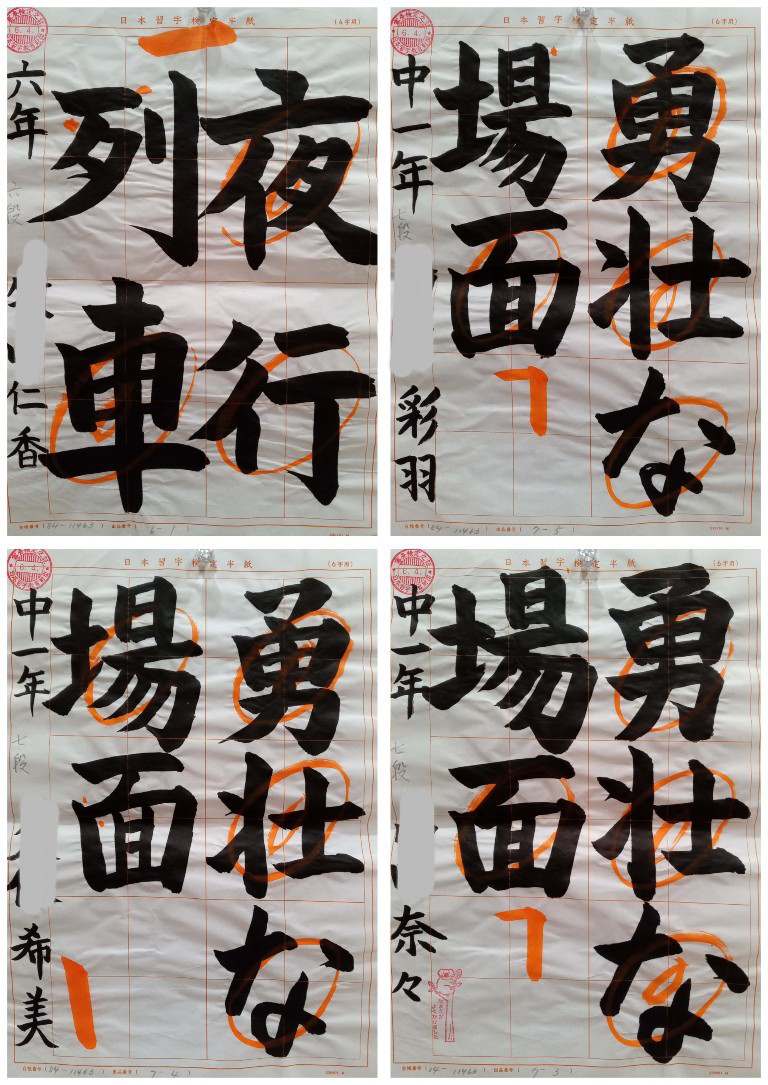 日本習字検定半紙
(6字用)
6.4.
夜行
列車
六年
六段
仁香
台帳番号(84-11463) 出品番号(6-1)
日本習字検定半紙
(6字用)
6.4.
勇壮な
場面
中一年
七段
彩羽
台帳番号(84-11463) 出品番号(7-5)
日本習字検定半紙
(6字用)
6.4.
勇壮な
場面
中一年
七段
希美
台帳番号(84-11463) 出品番号(7-4)
日本習字検定半紙
(6字用)
6.4.
勇壮な
場面
中一年
七段
奈々
台帳番号(84-11463) 出品番号(7-3)